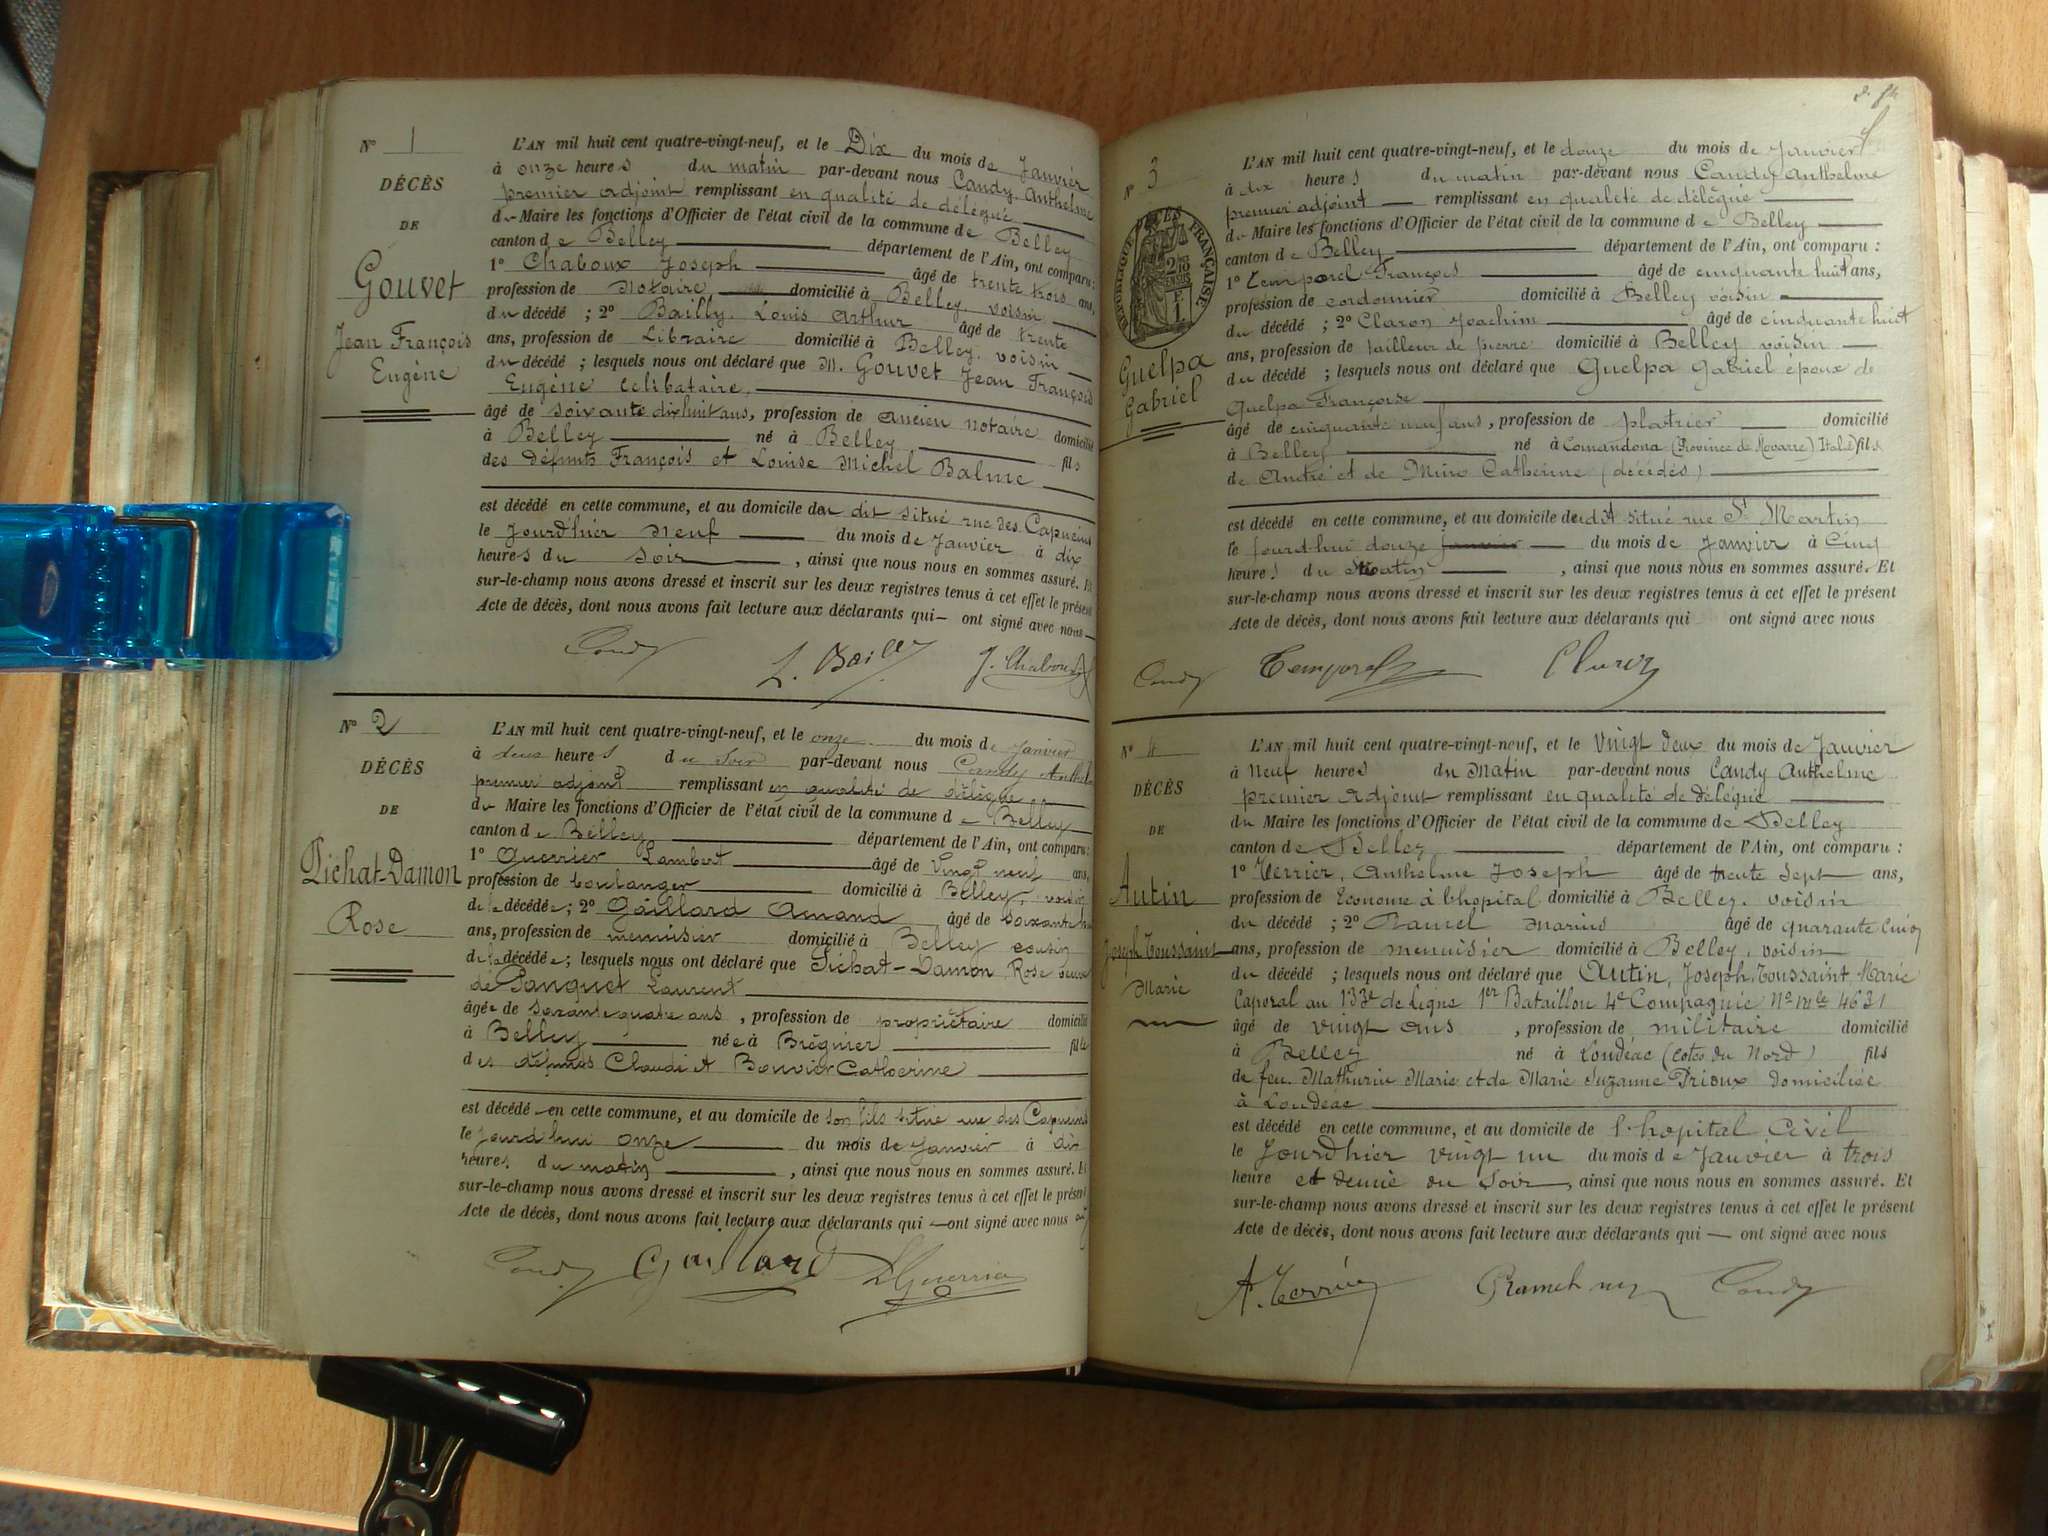 N° 1
DÉCÈS
DE
Gouvet
Jean François
Eugène
L'AN mil huit cent quatre-vingt-neuf, et le Dix du mois de Janvier
à onze heures du matin par-devant nous Candy, Anthelme
premier adjoint remplissant en qualité de délégué
du Maire les fonctions d'Officier de l'état civil de la commune de Belley
canton de Belley département de l'Ain, ont comparu :
1° Chaboux Joseph âgé de trente trois ans,
profession de Notaire domicilié à Belley, voisin
du décédé ; 2° Bailly, Louis Arthur âgé de trente
ans, profession de Libraire domicilié à Belley, voisin
du décédé ; lesquels nous ont déclaré que M. Gouvet Jean François
Eugène célibataire,
âgé de soixante dix huit ans, profession de ancien notaire domicilié
à Belley né à Belley fils
des défunts François et Louise Michel Balme
est décédé en cette commune, et au domicile du dit situé rue des Capucins
le jourdhier neuf du mois de Janvier à dix
heures du soir, ainsi que nous nous en sommes assuré. Et
sur-le-champ nous avons dressé et inscrit sur les deux registres tenus à cet effet le présent
Acte de décès, dont nous avons fait lecture aux déclarants qui ont signé avec nous
Candy L. Bailly J. Chaboux
N° 2
DÉCÈS
DE
Pichat-Damon
Rose
L'AN mil huit cent quatre-vingt-neuf, et le onze du mois de Janvier
à deux heures du Soir par-devant nous Candy Anthel
premier adjoint remplissant en qualité de délégué
du Maire les fonctions d'Officier de l'état civil de la commune de Belley
canton de Belley département de l'Ain, ont comparu :
1° Guerrier Lambert âgé de Vingt neuf ans,
profession de boulanger domicilié à Belley, voisin
de la décédée ; 2° Gaillard Amand âgé de soixante
ans, profession de menuisier domicilié à Belley cousin
de la décédée ; lesquels nous ont déclaré que Pichat-Damon Rose veuve
de Panquet Laurent
âgée de soixante quatre ans, profession de propriétaire domicilié
à Belley née à Brégnier fille
des défunts Claude et Bouvier Catherine
est décédé en cette commune, et au domicile de son fils situé rue des Capucins
le jourd'hui onze du mois de Janvier à dix
heures du matin, ainsi que nous nous en sommes assuré. Et
sur-le-champ nous avons dressé et inscrit sur les deux registres tenus à cet effet le présent
Acte de décès, dont nous avons fait lecture aux déclarants qui ont signé avec nous
Candy Gaillard L Guerrier
N° 3
RÉPUBLIQUE FRANÇAISE
Guelpa
Gabriel
L'AN mil huit cent quatre-vingt-neuf, et le douze du mois de Janvier
à dix heures du matin par-devant nous Candy Anthelme
premier adjoint remplissant en qualité de délégué
du Maire les fonctions d'Officier de l'état civil de la commune de Belley
canton de Belley département de l'Ain, ont comparu :
1° Temporel François âgé de cinquante huit ans,
profession de cordonnier domicilié à Belley voisin
du décédé ; 2° Claron Joachim âgé de cinquante huit
ans, profession de tailleur de pierre domicilié à Belley voisin
du décédé ; lesquels nous ont déclaré que Guelpa Gabriel époux de
Guelpa Françoise
âgé de cinquante neuf ans, profession de platrier domicilié
à Belley né à Comandona (Province de Novarre) Italie fils
de André et de Mino Catherine (décédés)
est décédé en cette commune, et au domicile dudit situé rue St Martin
le jourd'hui douze janvier du mois de Janvier à Cinq
heures du Matin, ainsi que nous nous en sommes assuré. Et
sur-le-champ nous avons dressé et inscrit sur les deux registres tenus à cet effet le présent
Acte de décès, dont nous avons fait lecture aux déclarants qui ont signé avec nous
Candy Temporel Claron
N° 4
DÉCÈS
DE
Autin
Joseph Toussaint
Marie
L'AN mil huit cent quatre-vingt-neuf, et le vingt deux du mois de Janvier
à Neuf heures du Matin par-devant nous Candy Anthelme
premier Adjoint remplissant en qualité de délégué
du Maire les fonctions d'Officier de l'état civil de la commune de Belley
canton de Belley département de l'Ain, ont comparu :
1° Verrier, Anthelme Joseph âgé de trente Sept ans,
profession de Econome à l'hopital domicilié à Belley. voisin
du décédé ; 2° Ramel Marius âgé de quarante Cinq
ans, profession de menuisier domicilié à Belley, voisin
du décédé ; lesquels nous ont déclaré que Autin, Joseph, Toussaint, Marie
Caporal au 133e de Ligne 1er Bataillon 4e Compagnie No mle 4631
âgé de vingt ans, profession de militaire domicilié
à Belley né à Loudéac (Cotes du Nord) fils
de feu Mathurin Marie et de Marie Suzanne Prioux domiciliée
à Loudéac
est décédé en cette commune, et au domicile de l'hopital Civil
le Jourdhier vingt un du mois de Janvier à trois
heure et demie du Soir, ainsi que nous nous en sommes assuré. Et
sur-le-champ nous avons dressé et inscrit sur les deux registres tenus à cet effet le présent
Acte de décès, dont nous avons fait lecture aux déclarants qui ont signé avec nous
Candy